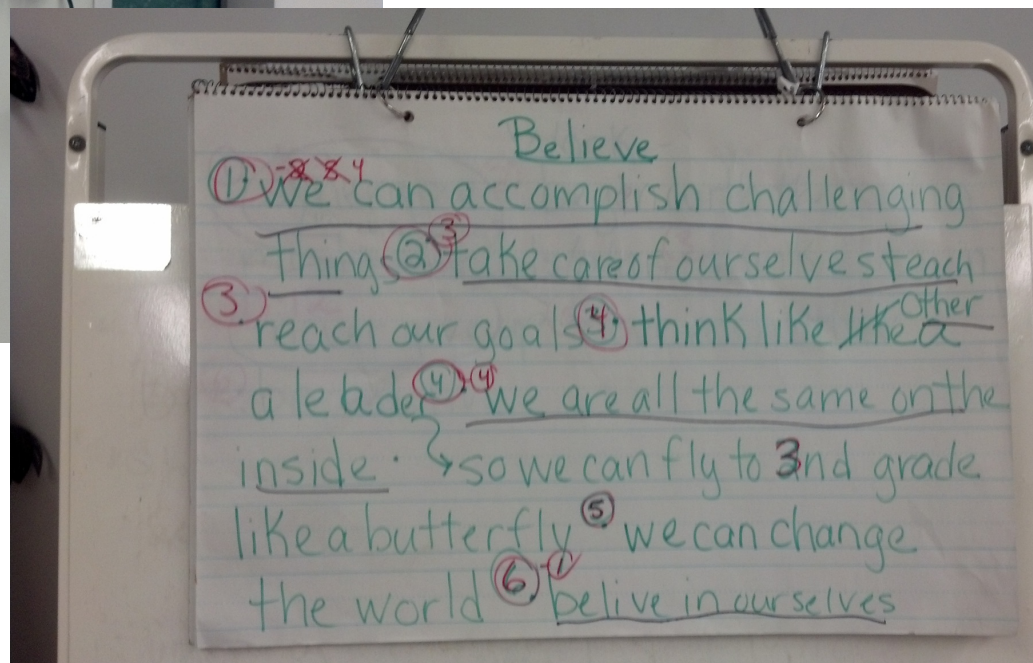 Believe
① We can accomplish challenging
things ② 3 take care of ourselves teach
3. reach our goals 4 think like like a Other
a leader 4 4 we are all the same on the
inside. so we can fly to 3nd grade
like a butterfly ⑤ we can change
the world ⑥ 1 belive in ourselves